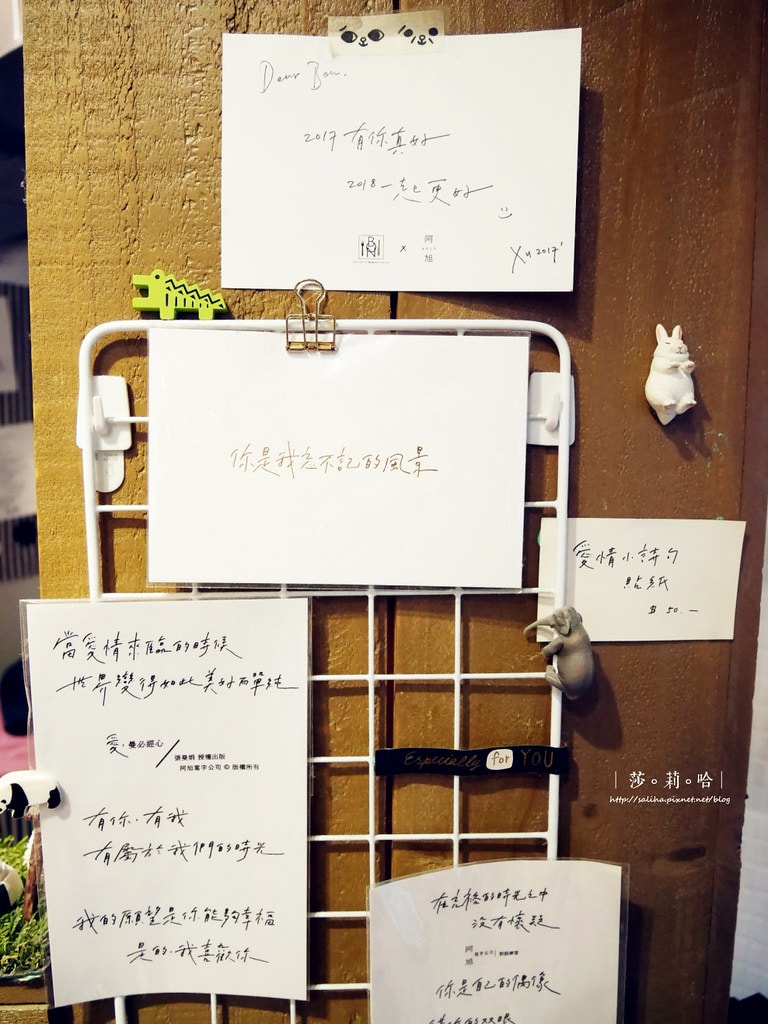 Dear Bon.
2017 有你真好
2018 一起更好
BON
x
阿旭
Xu 2017'
你是我忘不記的風景
愛情小詩句
貼紙
$ 50.—
當愛情來臨的時候
世界變得如此美好而單純
愛‧曼必經心
張曼娟 授權出版
阿旭寫字公司 © 版權所有
有你‧有我
有屬於我們的時光
我的願望是你能夠幸福
是的‧我喜歡你
Especially for YOU
｜莎。莉。哈｜
http://saliha.pixnet.net/blog
沒有懷疑
阿旭
寫字公司
你是自己的偶像